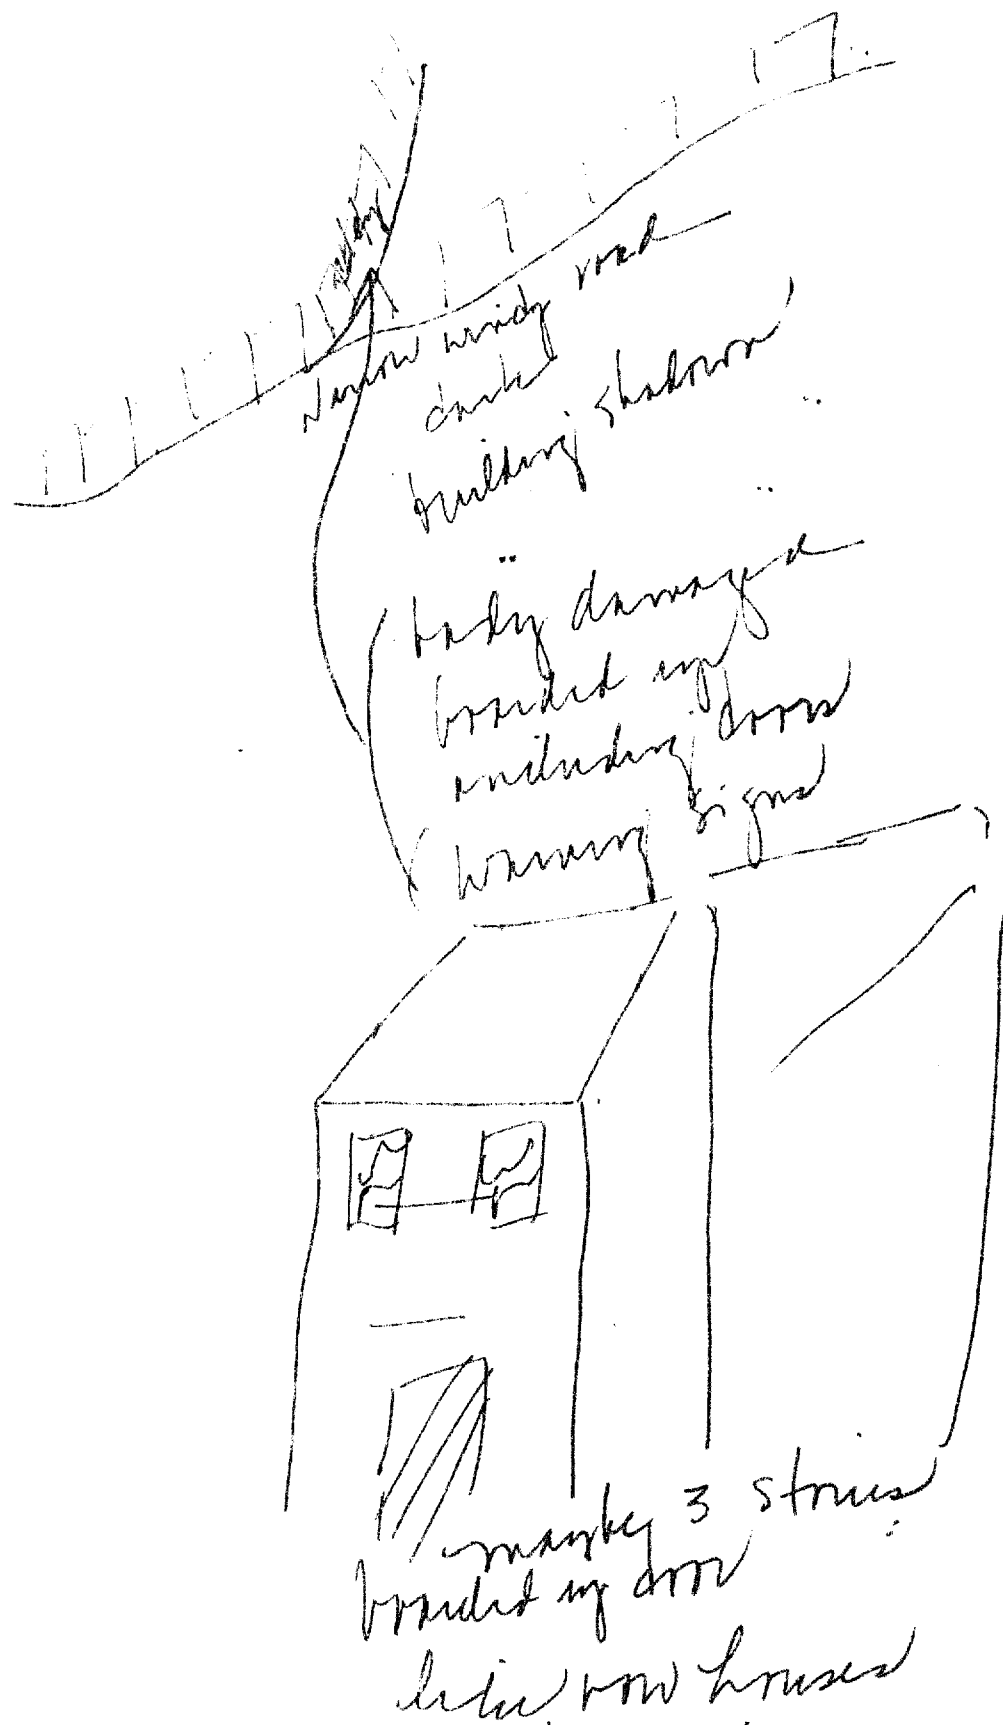 narrow windy road
dark
building shadows
badly damaged
boarded up
including doors
warning signs
maybe 3 stories
boarded up door
like row houses